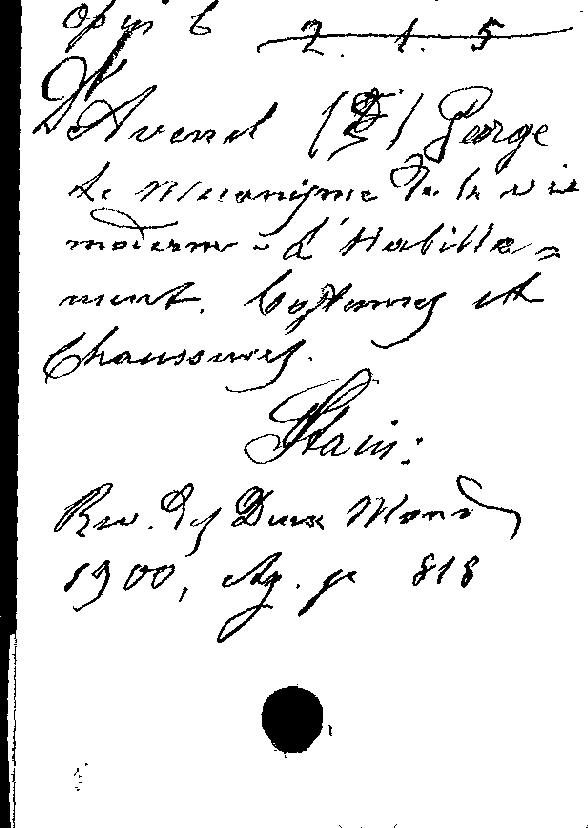 2. 1. 5
D'Avenel George
Le Mecanisme De la vie
moderne - L'Habille=
ment. Costumes et
Chaussures.
Rev. des Deux Mond
1900, 818